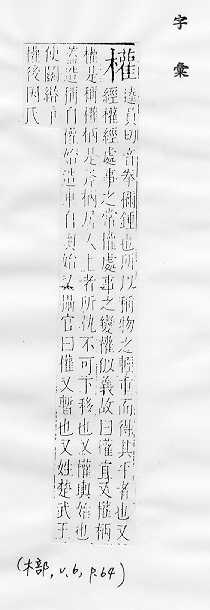 字彙
權
逵員切音拳稱錘也所以稱物之輕重而得其平者也又
經權經處事之常權處事之變權似義故曰權宜又權柄
權是稱權柄是斧柄居人上者所執不可下移也又權輿始也
蓋造稱自權始造車自輿始又攝官曰權又暫也又姓楚武王
使鬭緡尹
權後因氏
(木部, v.6, p.64)